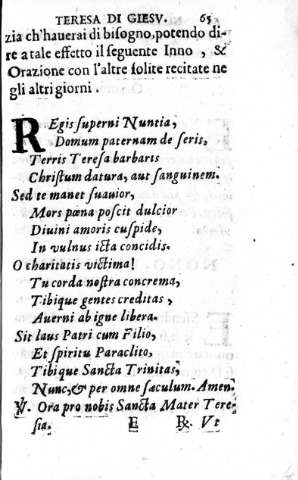 TERESA DI GIESV. 65
zia ch'hauerai di bisogno, potendo di-
re a tale effetto il seguente Inno, &
Orazione con l'altre solite recitate ne
gli altri giorni.
REgis superni Nuntia,
Domum paternam deseris,
Terris Teresa barbarts
Christum datura, aut sanguinem.
Sed te manet suauior,
Mors pœna poscit dulcior
Diuini amoris cuspide,
In vulnus icta concidis.
O charitatis victima!
Tu corda nostra concrema,
Tibique gentes creditas,
Auerni ab igne libera.
Sit laus Patri cum Filio,
Et spiritu Paraclito,
Tibique Sancta Trinitas,
Nunc, & per omne sæculum. Amen.
℣. Ora pro nobis Sancta Mater Tere-
sia. E ℞. Vt